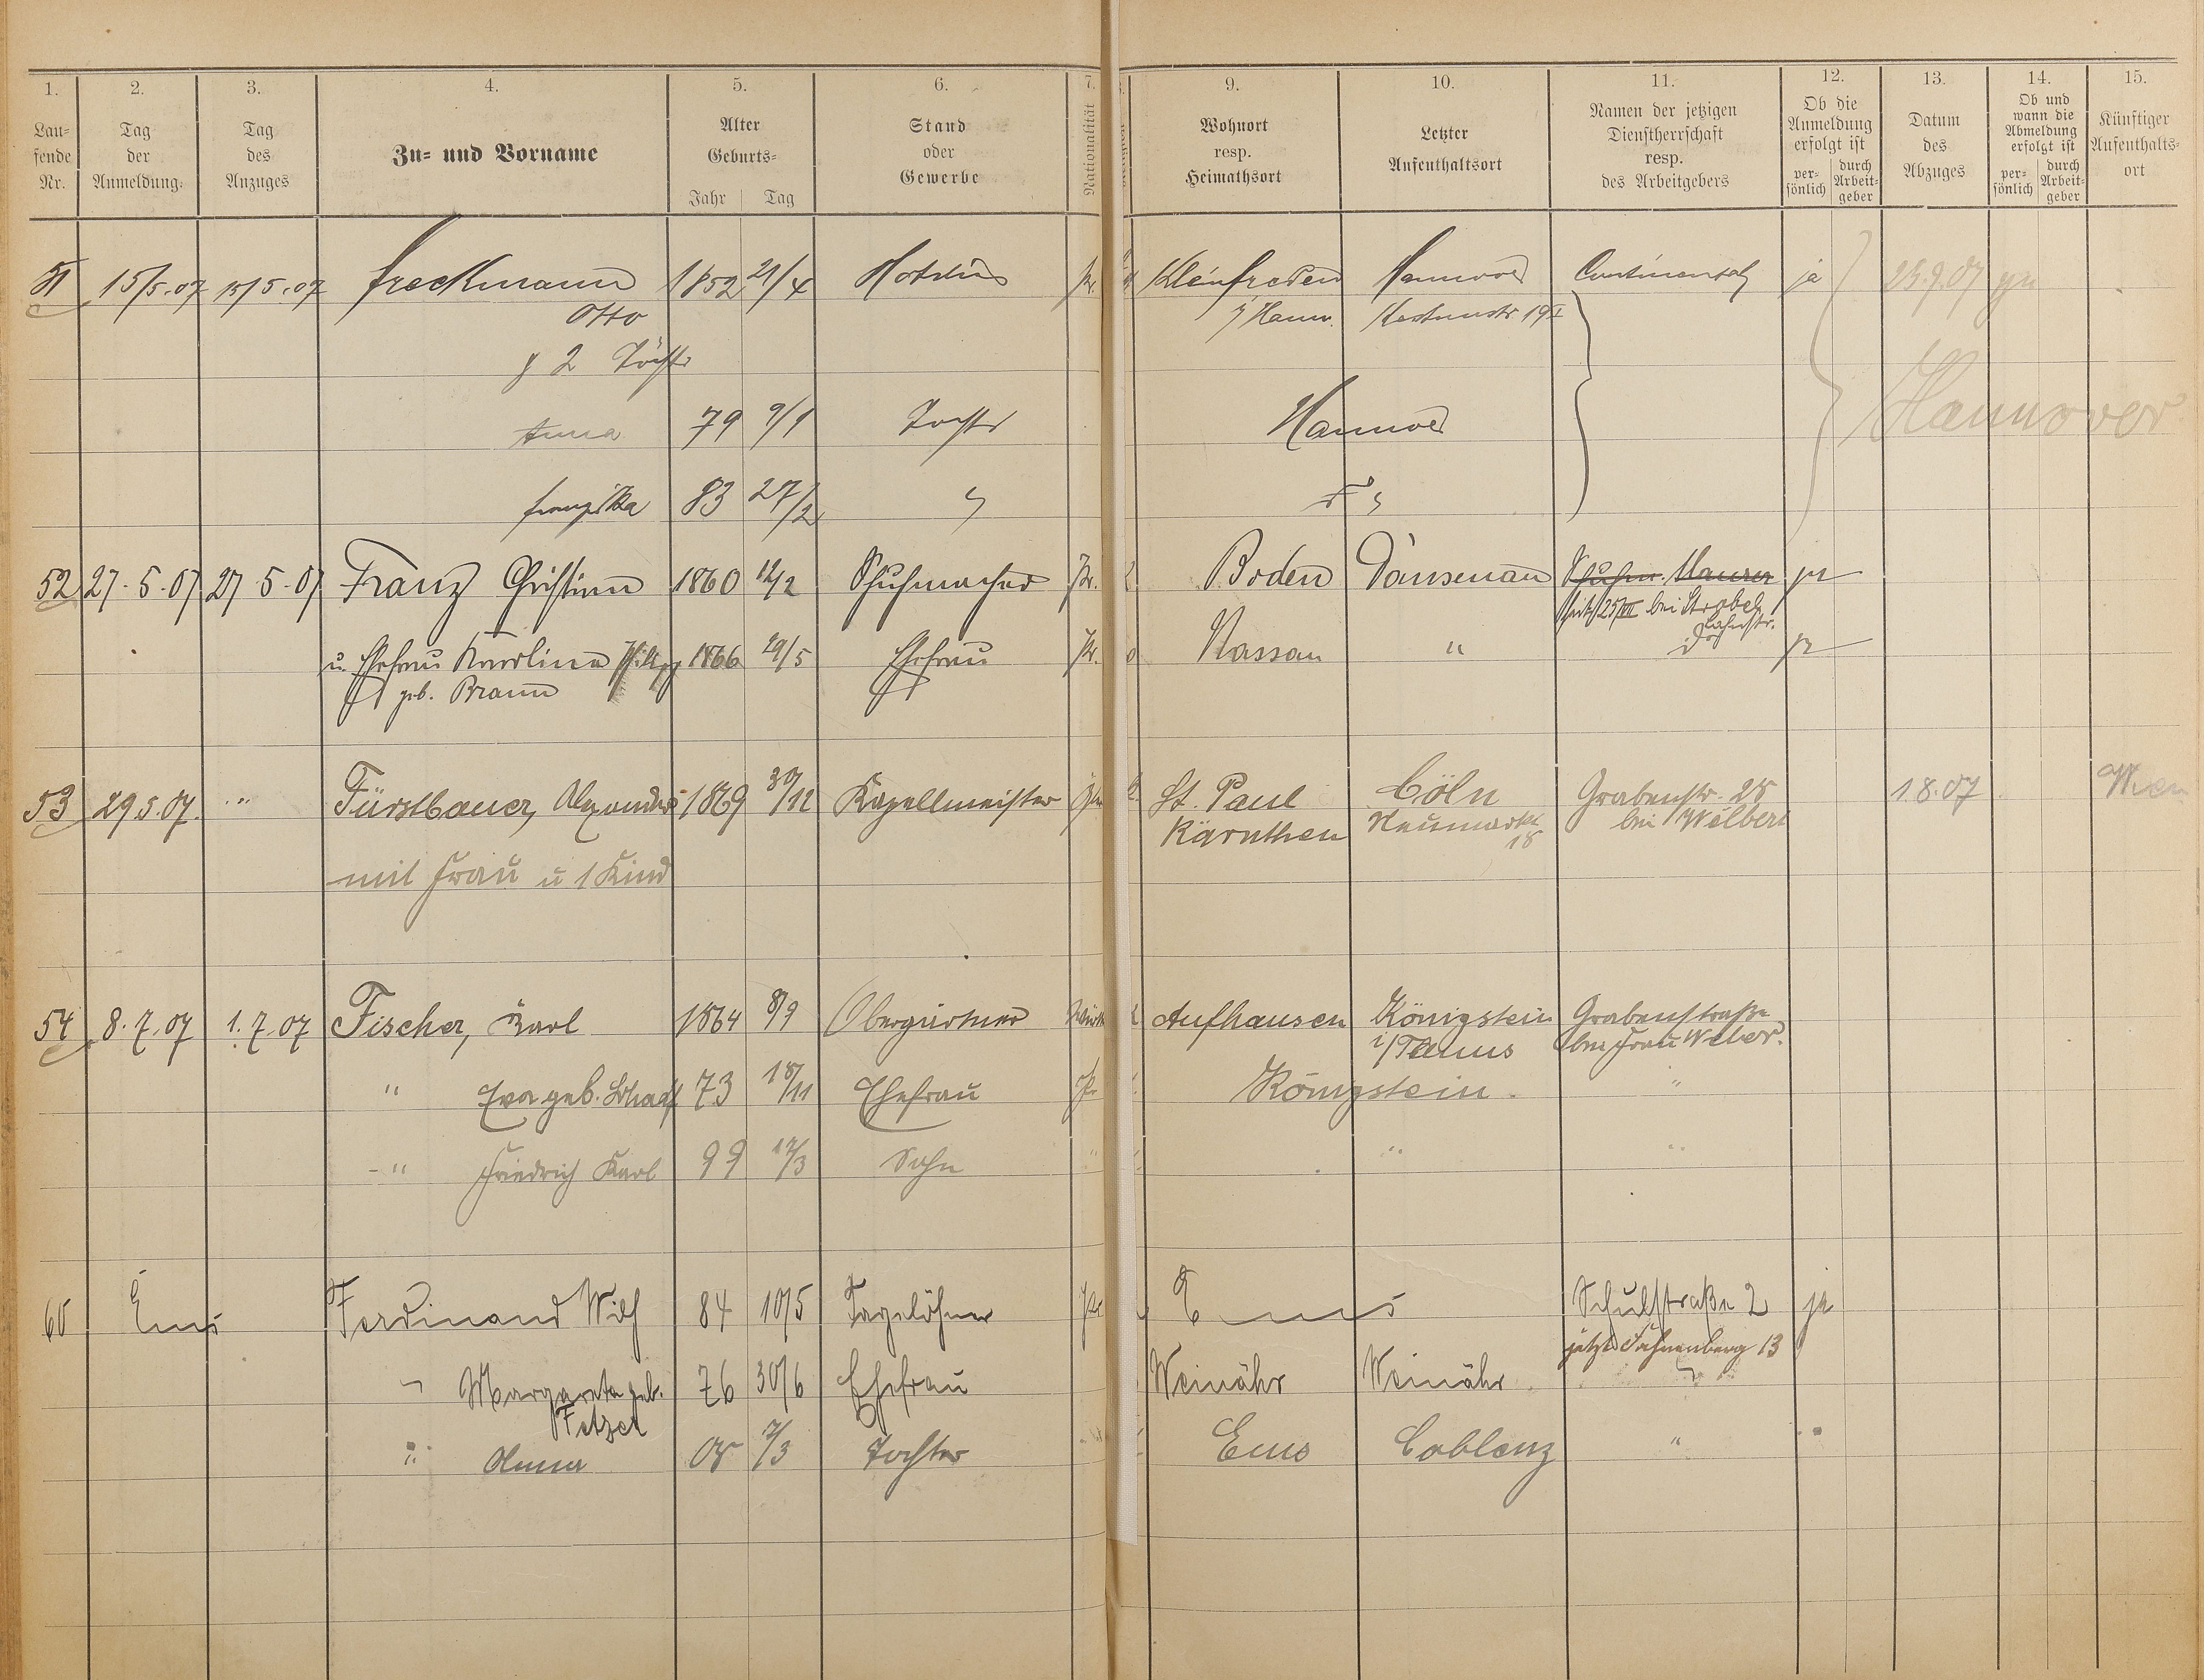 1. 2. 3. 4. 5. 6. 7. 9. 10. 11. 12. 13. 14. 15.
Lau-
fende
Nr.
Tag
der
Anmeldung:
Tag
des
Anzuges
Zu- und Vorname
Alter
Geburts-
Jahr Tag
Stand
oder
Gewerbe
Nationalität
Wohnort
resp.
Heimathsort
Letzter
Aufenthaltsort
Namen der jetzigen
Dienstherrschaft
resp.
des Arbeitgebers
Ob die
Anmeldung
erfolgt ist
per-
sönlich
durch
Arbeit-
geber
Datum
des
Abzuges
Ob und
wann die
Abmeldung
erfolgt ist
per-
sönlich
durch
Arbeit-
geber
Künftiger
Aufenthalts-
ort
51 15/5.07 15/5.07 Freckmann 1852 21/4 Pr. Kleinfreden Hannover Continental ja 23.9.07
Otto Hann. 19I
2 Töcht
Anna 79 9/1 Tocht Hannover
Hannover
Franziska 83 27/2
52 27.5.07 27.5.07 Franz Christian 1860 12/2 Schuhmacher Pr. Boden Dausenau Schuhm. Maurer ja
seit 25/VII bei Strobel
Lahnstr.
u. Ehefrau Karolina 1866 29/5 Ehefrau Pr. Nassau " ja
geb. Braun
53 29.5.07. " Fürstbauer, Alexander 1869 30/12 Kapellmeister St. Paul Cöln Grabenstr. 28 1.8.07 Wien
Kärnthen Neumarkt bei Wilbert
18
mit Frau u 1 Kind
54 8.7.07 1.7.07 Fischer, Karl 1864 8/9 Obergärtner Württ Aufhausen Königstein Grabenstraße
i/Taunus bei Frau Weber.
" Eva geb. Schaaf 73 18/11 Ehefrau Pr Königstein. "
" Friedrich Karl 99 17/3 Sohn " " "
60 Ems Ferdinand Wilh 84 10/5 Tagelöhner Pr Ems Schulstraße 2 ja
jetzt Fahnenberg 13
" Margareta geb. 76 30/6 Ehefrau Weinähr Weinähr "
Fetzer
" Anna 08 7/3 Tochter Ems Coblenz "